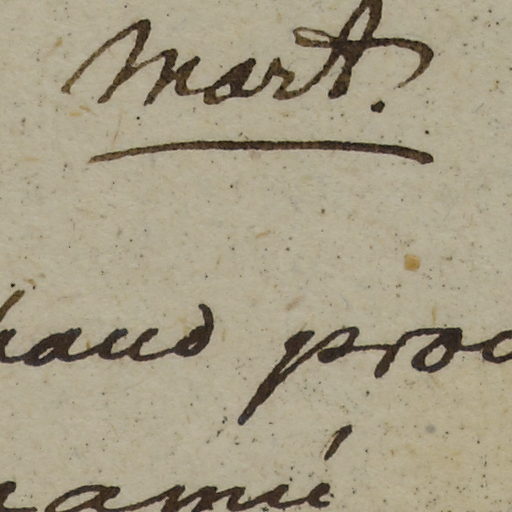 Mart.
haud proc
namu